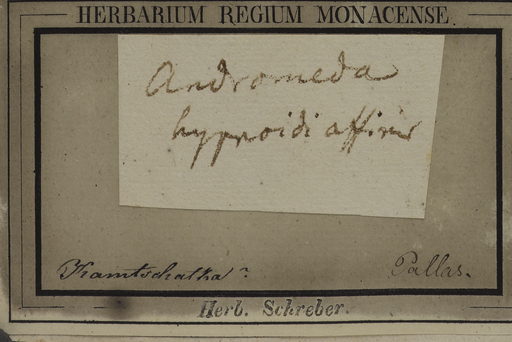 HERBARIUM REGIUM MONACENSE.
Andromeda
hypnoidi affinis
Kamtschatka?
Pallas.
Herb. Schreber.